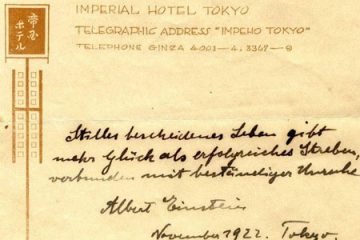 IMPERIAL HOTEL TOKYO
TELEGRAPHIC ADDRESS "IMPEHO TOKYO"
TELEPHONE GINZA 4001-4, 3367-9
帝国
ホテル
Stilles bescheidenes Leben gibt
mehr Glück als erfolgreiches Streben,
verbunden mit beständiger Unruhe
Albert Einstein
November 1922. Tokyo